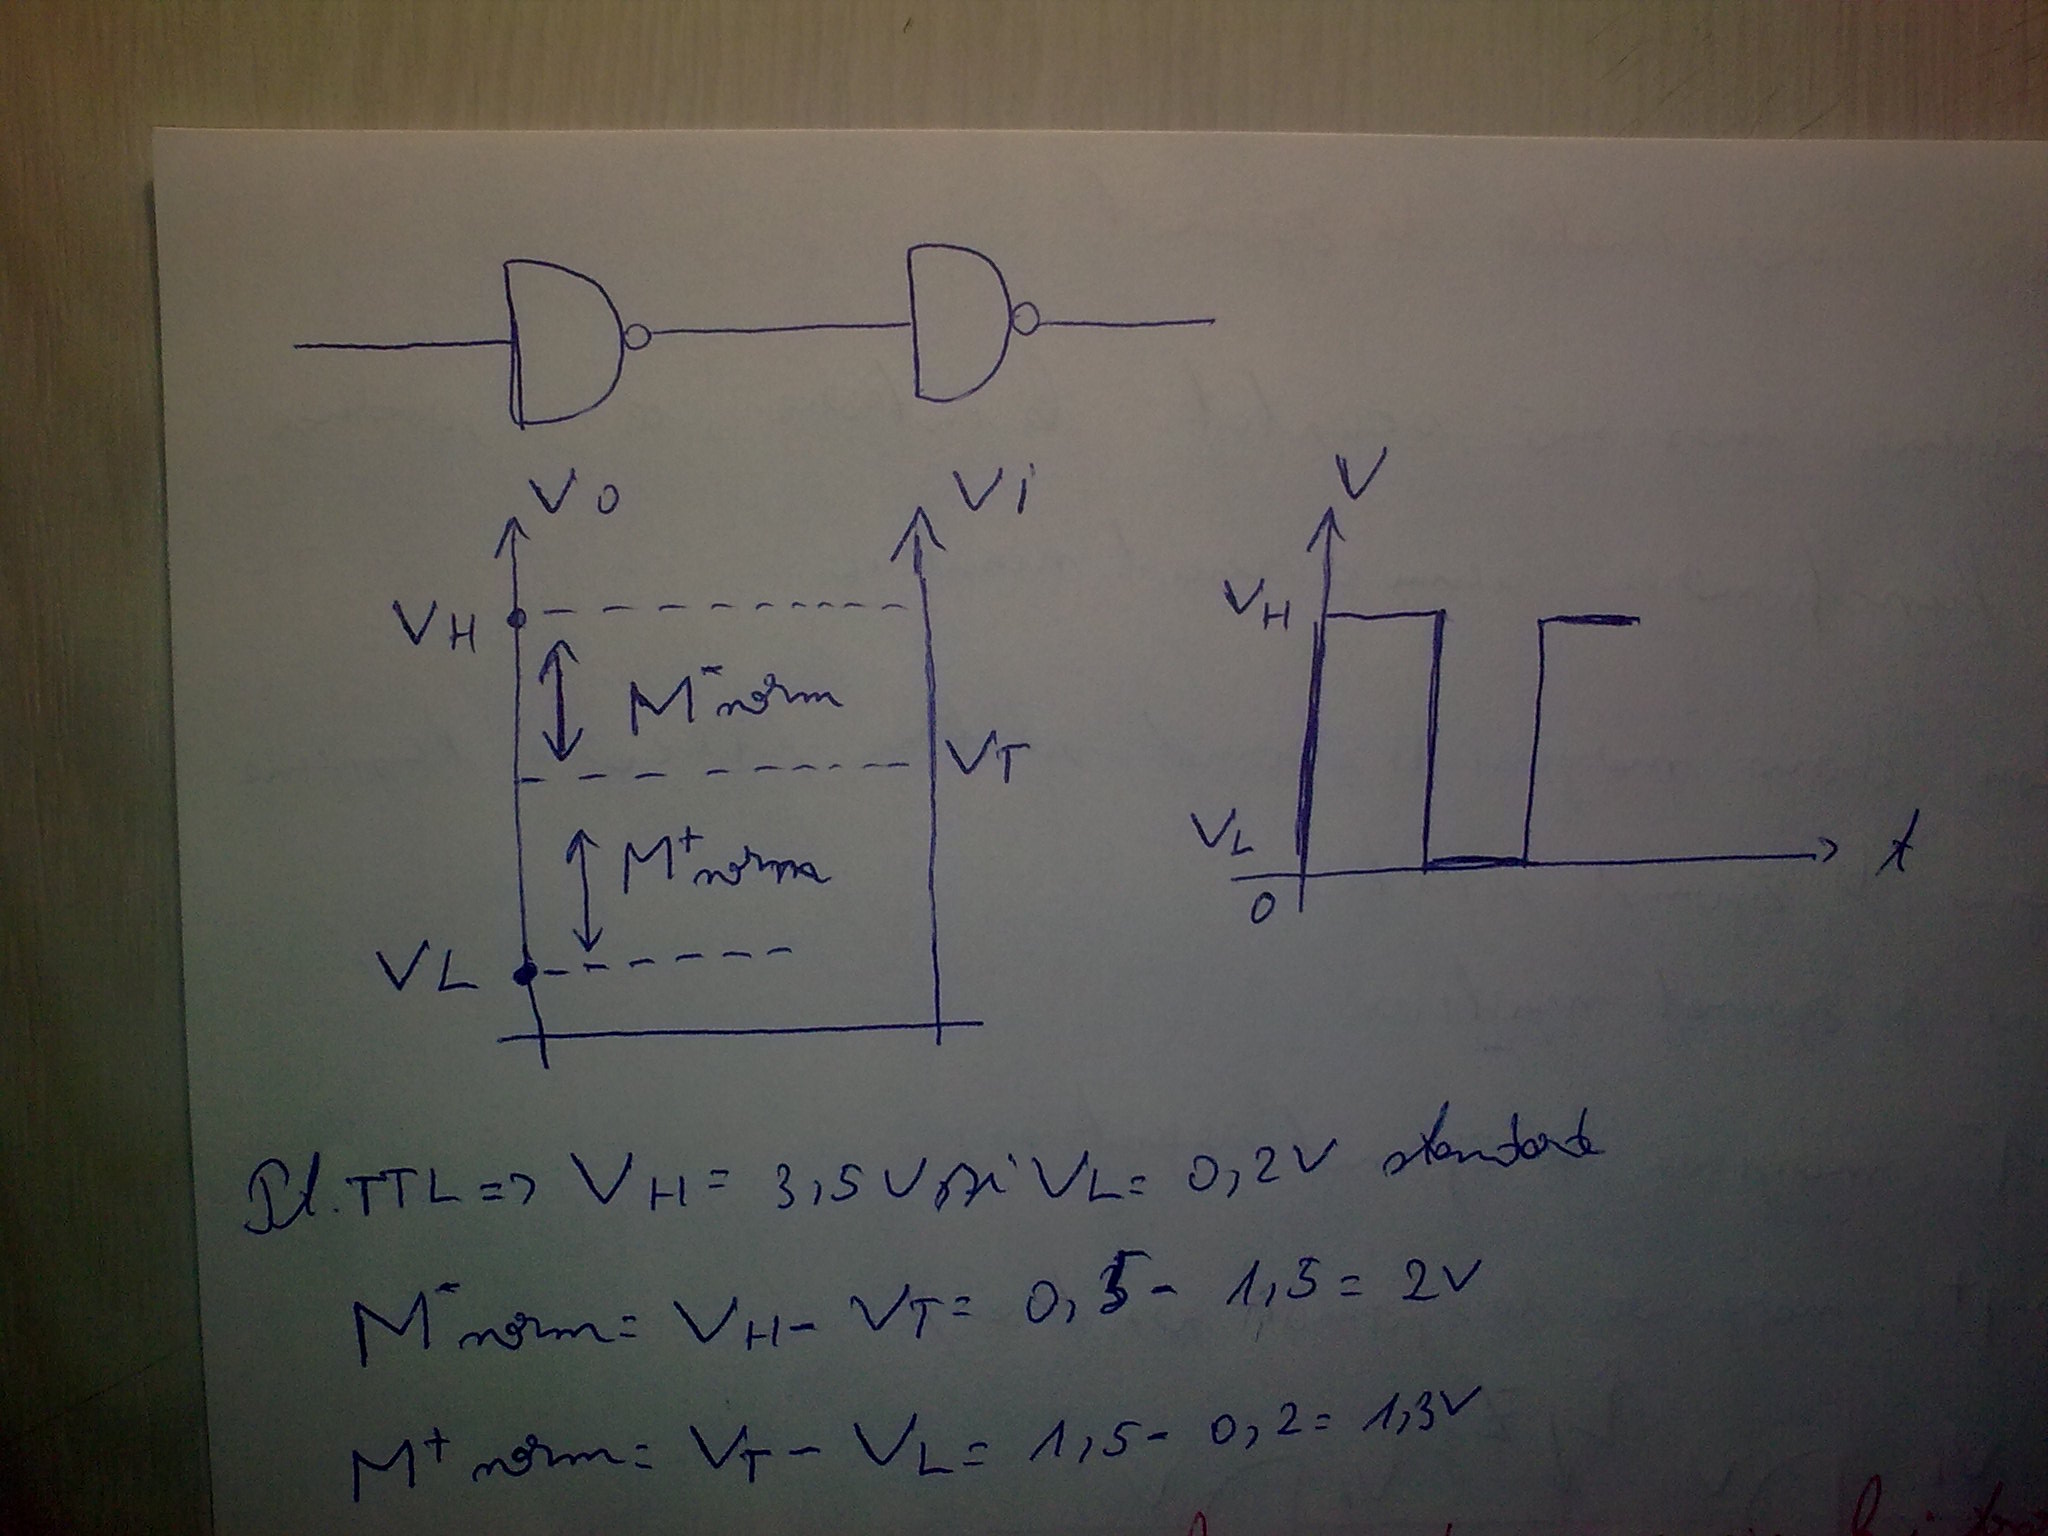 Vo
Vi
V
VH
M⁻norm
VT
M⁺norm
VL
VH
VL
0
t
TTL => VH = 3,5V și VL = 0,2V standard
M⁻norm = VH - VT = 0,5 - 1,5 = 2V
M⁺norm = VT - VL = 1,5 - 0,2 = 1,3V